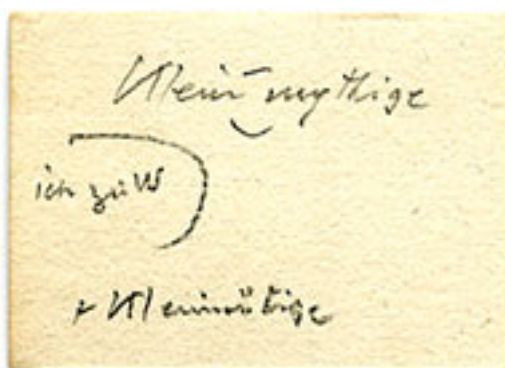 Klein mythige
ich zu
+ Kleinmütige